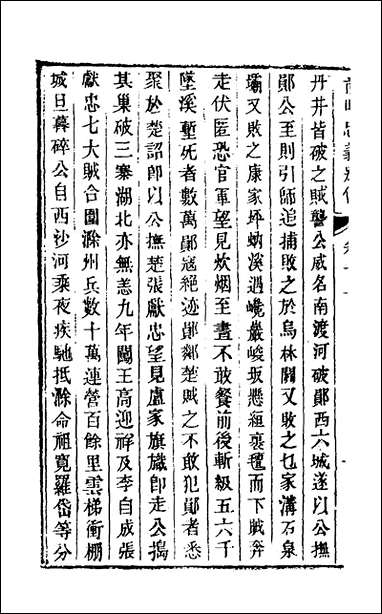 前明忠義別傳 卷十一
丹井皆破之賊讋公威名南渡河破鄖西六城遂以公撫
鄖公至則引師追捕敗之於烏林關又敗之乜家溝石泉
壩又敗之康家坪蚋溪遇巉巖峻坂懸絙裹氊而下賊奔
走伏匿恐官軍望見炊烟至晝不敢餐前後斬級五六千
墜溪塹死者數萬鄖寇絕迹鄖鄰楚賊之不敢犯鄖者悉
聚於楚詔卽以公撫楚張獻忠望見盧家旗旘卽走公搗
其巢破三寨湖北亦無恙九年闖王高迎祥及李自成張
獻忠七大賊合圍滁州兵數十萬連營百餘里雲梯衝棚
城旦暮碎公自西沙河乘夜疾馳抵滁命祖寬羅岱等分